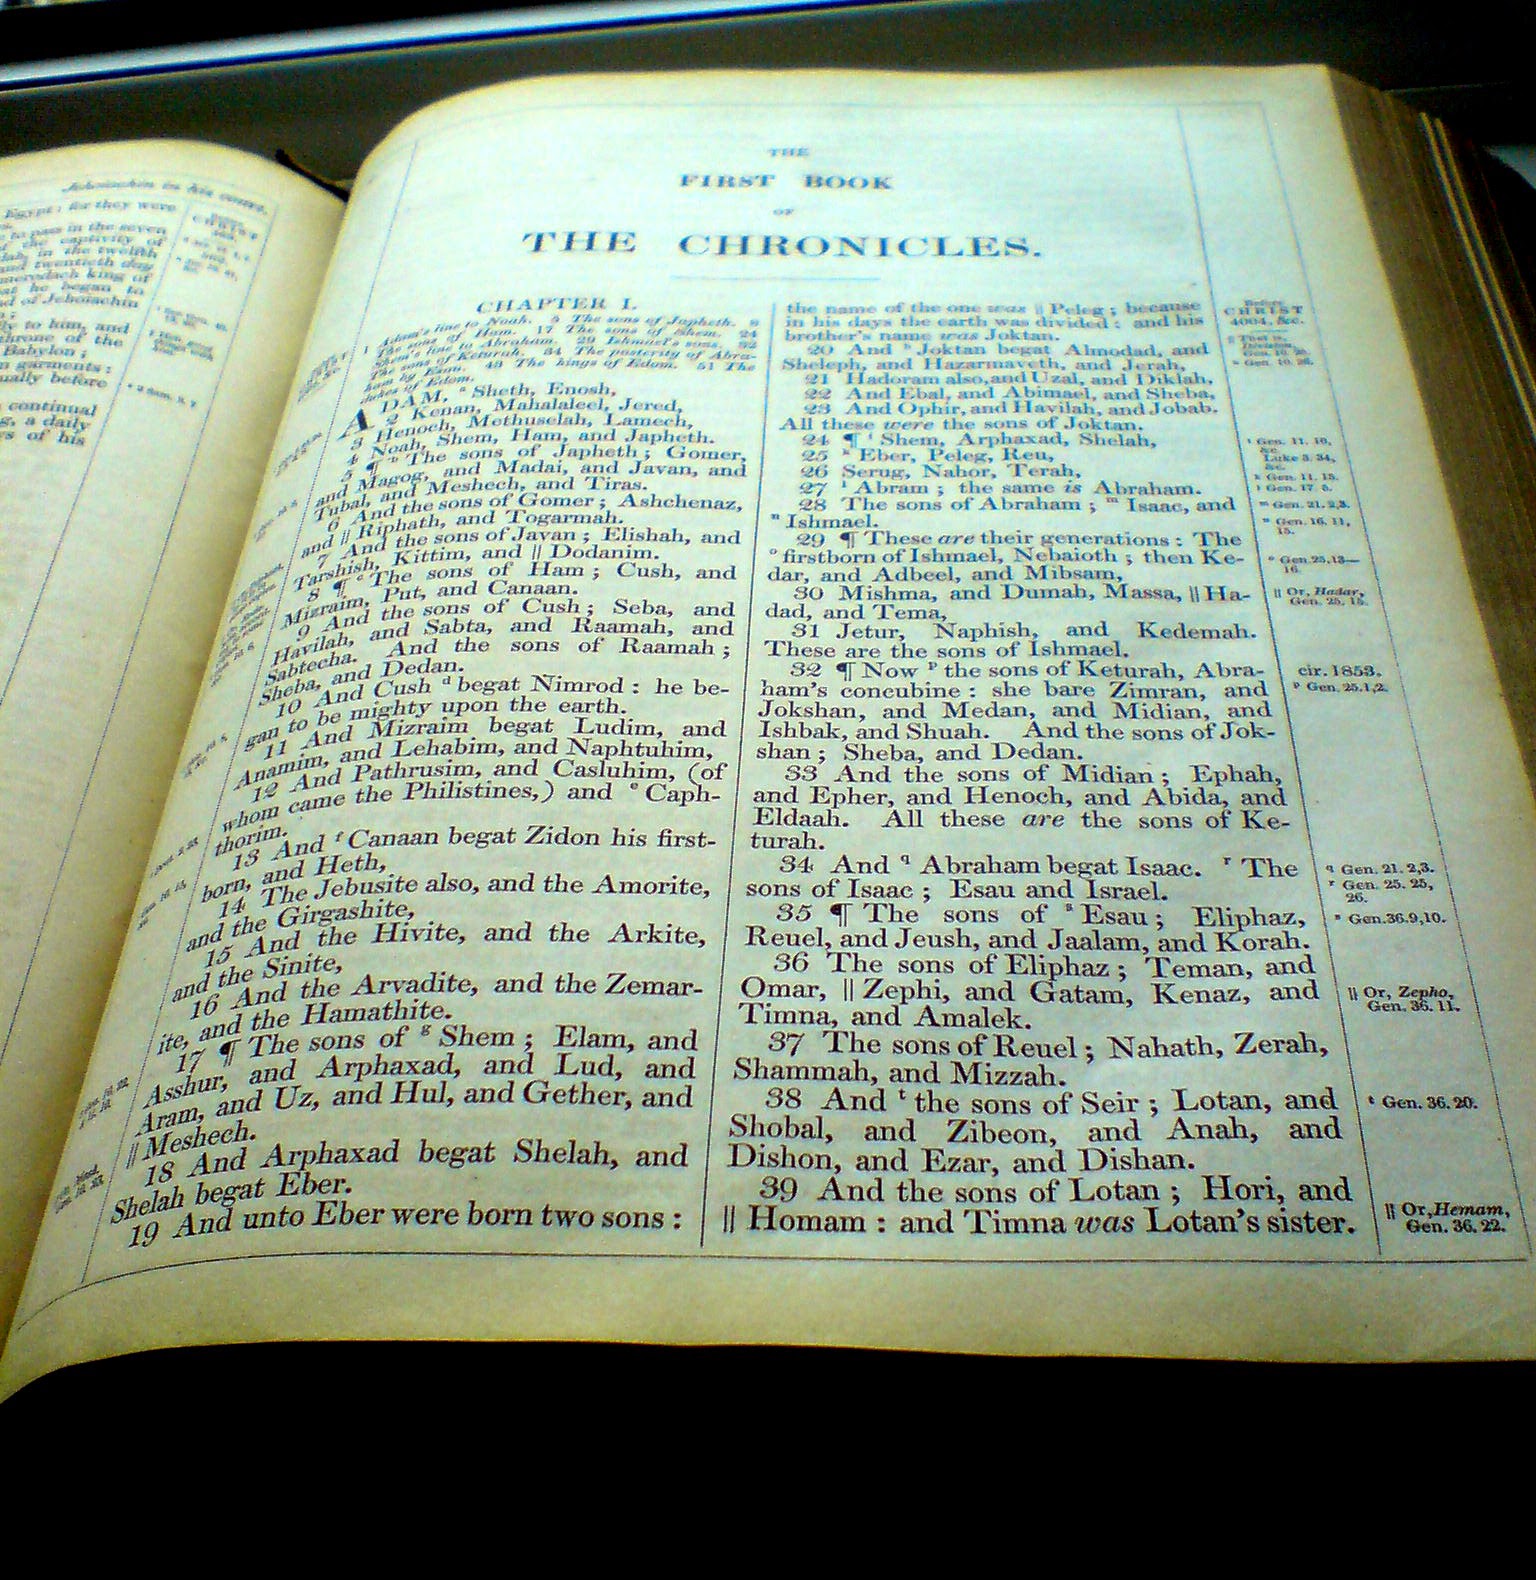 Jehoiachin in his court.
Egypt: for they were
to pass in the seven
of the captivity of
in the twelfth
and twentieth day
merodach king of
he began to
of Jehoiachin
to him, and
throne of the
Babylon;
garments:
before
continual
a daily
of his
CHRIST
THE
FIRST BOOK
OF
THE CHRONICLES.
CHAPTER I.
1 Adam's line to Noah. 5 The sons of Japheth. 8
The sons of Ham. 17 The sons of Shem. 24
Shem's line to Abraham. 29 Ishmael's sons. 32
The sons of Keturah. 34 The posterity of Abra-
ham by Esau. 43 The kings of Edom. 51 The
dukes of Edom.
ADAM, a Sheth, Enosh,
2 Kenan, Mahalaleel, Jered,
3 Henoch, Methuselah, Lamech,
4 Noah, Shem, Ham, and Japheth.
5 ¶ b The sons of Japheth; Gomer,
and Magog, and Madai, and Javan, and
Tubal, and Meshech, and Tiras.
6 And the sons of Gomer; Ashchenaz,
and || Riphath, and Togarmah.
7 And the sons of Javan; Elishah, and
Tarshish, Kittim, and || Dodanim.
8 ¶ c The sons of Ham; Cush, and
Mizraim, Put, and Canaan.
9 And the sons of Cush; Seba, and
Havilah, and Sabta, and Raamah, and
Sabtecha. And the sons of Raamah;
Sheba, and Dedan.
10 And Cush d begat Nimrod: he be-
gan to be mighty upon the earth.
11 And Mizraim begat Ludim, and
Anamim, and Lehabim, and Naphtuhim,
12 And Pathrusim, and Casluhim, (of
whom came the Philistines,) and e Caph-
thorim.
13 And f Canaan begat Zidon his first-
born, and Heth,
14 The Jebusite also, and the Amorite,
and the Girgashite,
15 And the Hivite, and the Arkite,
and the Sinite,
16 And the Arvadite, and the Zemar-
ite, and the Hamathite.
17 ¶ The sons of g Shem; Elam, and
Asshur, and Arphaxad, and Lud, and
Aram, and Uz, and Hul, and Gether, and
|| Meshech.
18 And Arphaxad begat Shelah, and
Shelah begat Eber.
19 And unto Eber were born two sons:
the name of the one was || Peleg; because
in his days the earth was divided: and his
brother's name was Joktan.
20 And h Joktan begat Almodad, and
Sheleph, and Hazarmaveth, and Jerah,
21 Hadoram also, and Uzal, and Diklah,
22 And Ebal, and Abimael, and Sheba,
23 And Ophir, and Havilah, and Jobab.
All these were the sons of Joktan.
24 ¶ i Shem, Arphaxad, Shelah,
25 k Eber, Peleg, Reu,
26 Serug, Nahor, Terah,
27 l Abram; the same is Abraham.
28 The sons of Abraham; m Isaac, and
n Ishmael.
29 ¶ These are their generations: The
o firstborn of Ishmael, Nebaioth; then Ke-
dar, and Adbeel, and Mibsam,
30 Mishma, and Dumah, Massa, || Ha-
dad, and Tema,
31 Jetur, Naphish, and Kedemah.
These are the sons of Ishmael.
32 ¶ Now p the sons of Keturah, Abra-
ham's concubine: she bare Zimran, and
Jokshan, and Medan, and Midian, and
Ishbak, and Shuah. And the sons of Jok-
shan; Sheba, and Dedan.
33 And the sons of Midian; Ephah,
and Epher, and Henoch, and Abida, and
Eldaah. All these are the sons of Ke-
turah.
34 And q Abraham begat Isaac. r The
sons of Isaac; Esau and Israel.
35 ¶ The sons of s Esau; Eliphaz,
Reuel, and Jeush, and Jaalam, and Korah.
36 The sons of Eliphaz; Teman, and
Omar, || Zephi, and Gatam, Kenaz, and
Timna, and Amalek.
37 The sons of Reuel; Nahath, Zerah,
Shammah, and Mizzah.
38 And t the sons of Seir; Lotan, and
Shobal, and Zibeon, and Anah, and
Dishon, and Ezar, and Dishan.
39 And the sons of Lotan; Hori, and
|| Homam: and Timna was Lotan's sister.
Before
CHRIST
4004, &c.
|| That is,
Division,
Gen. 10. 25.
h Gen. 10. 26.
i Gen. 11. 10,
&c.
Luke 3. 34,
&c.
k Gen. 11. 15.
l Gen. 17. 5.
m Gen. 21. 2, 3.
n Gen. 16. 11,
15.
o Gen. 25. 13—
16.
|| Or, Hadar,
Gen. 25. 15.
cir. 1853.
p Gen. 25. 1, 2.
q Gen. 21. 2, 3.
r Gen. 25. 25,
26.
s Gen. 36. 9, 10.
|| Or, Zepho,
Gen. 36. 11.
t Gen. 36. 20.
|| Or, Hemam,
Gen. 36. 22.